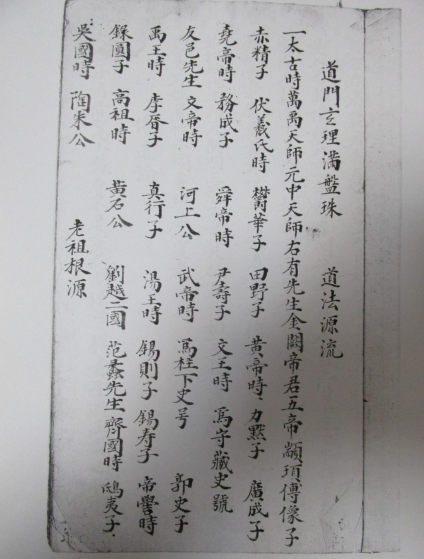 道門玄理滿盤珠　道法源流
一太古時萬禺天師元中天師右有先生金闕帝君五帝顓頊傅像子
赤精子　伏羲氏時　欝華子　田野子　黄帝時　力黙子　廣成子
堯帝時　務成子　舜帝時　尹壽子　文王時　為守藏史號
友邑先生　文帝時　河上公　武帝時　為柱下史号　郭史子
禹王時　李胥子　真行子　湯王時　錫則子　錫寿子　帝嚳時
錄圓子　高祖時　黄石公　劉越二國　范蠡先生　齊國時　鴟夷子
吳國時　陶朱公　老祖根源